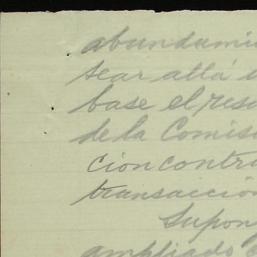 abundami
tear allá u
base el res
de la Comis
cion contra
transacción
Supon
ampliado